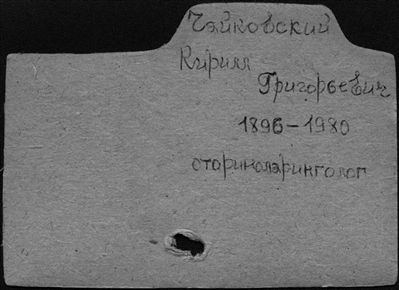 Чайковский
Кирилл
Григорьевич
1896-1980
оториноларинголог